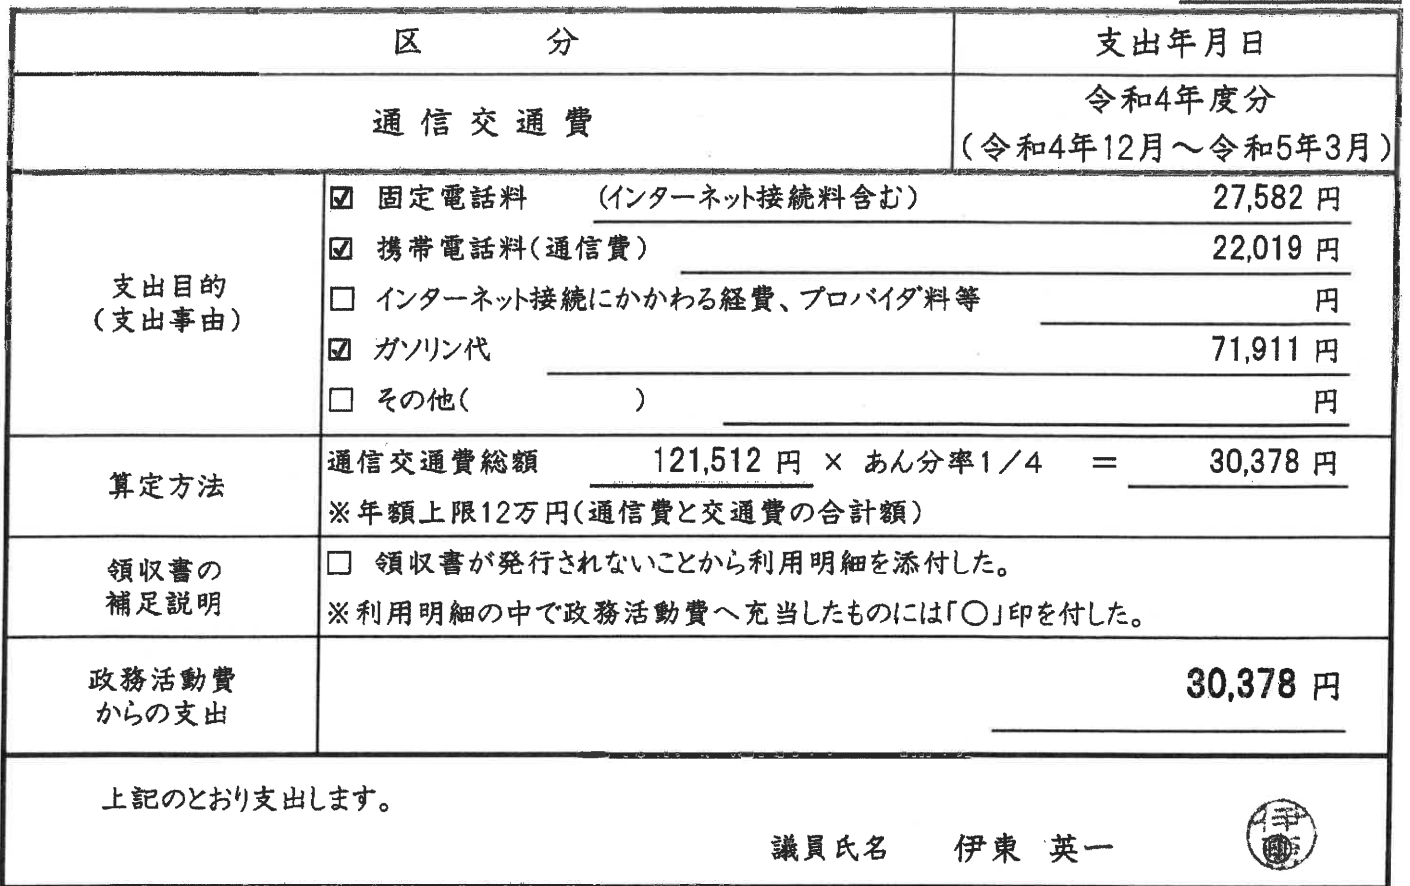 区 分 支出年月日
通信交通費 令和4年度分
(令和4年12月～令和5年3月)
支出目的
(支出事由)
☑ 固定電話料 (インターネット接続料含む) 27,582 円
☑ 携帯電話料(通信費) 22,019 円
□ インターネット接続にかかわる経費、プロバイダ料等 円
☑ ガソリン代 71,911 円
□ その他( ) 円
算定方法
通信交通費総額 121,512 円 × あん分率1/4 = 30,378 円
※年額上限12万円(通信費と交通費の合計額)
領収書の
補足説明
□ 領収書が発行されないことから利用明細を添付した。
※利用明細の中で政務活動費へ充当したものには「○」印を付した。
政務活動費
からの支出
30,378 円
上記のとおり支出します。
議員氏名 伊東 英一